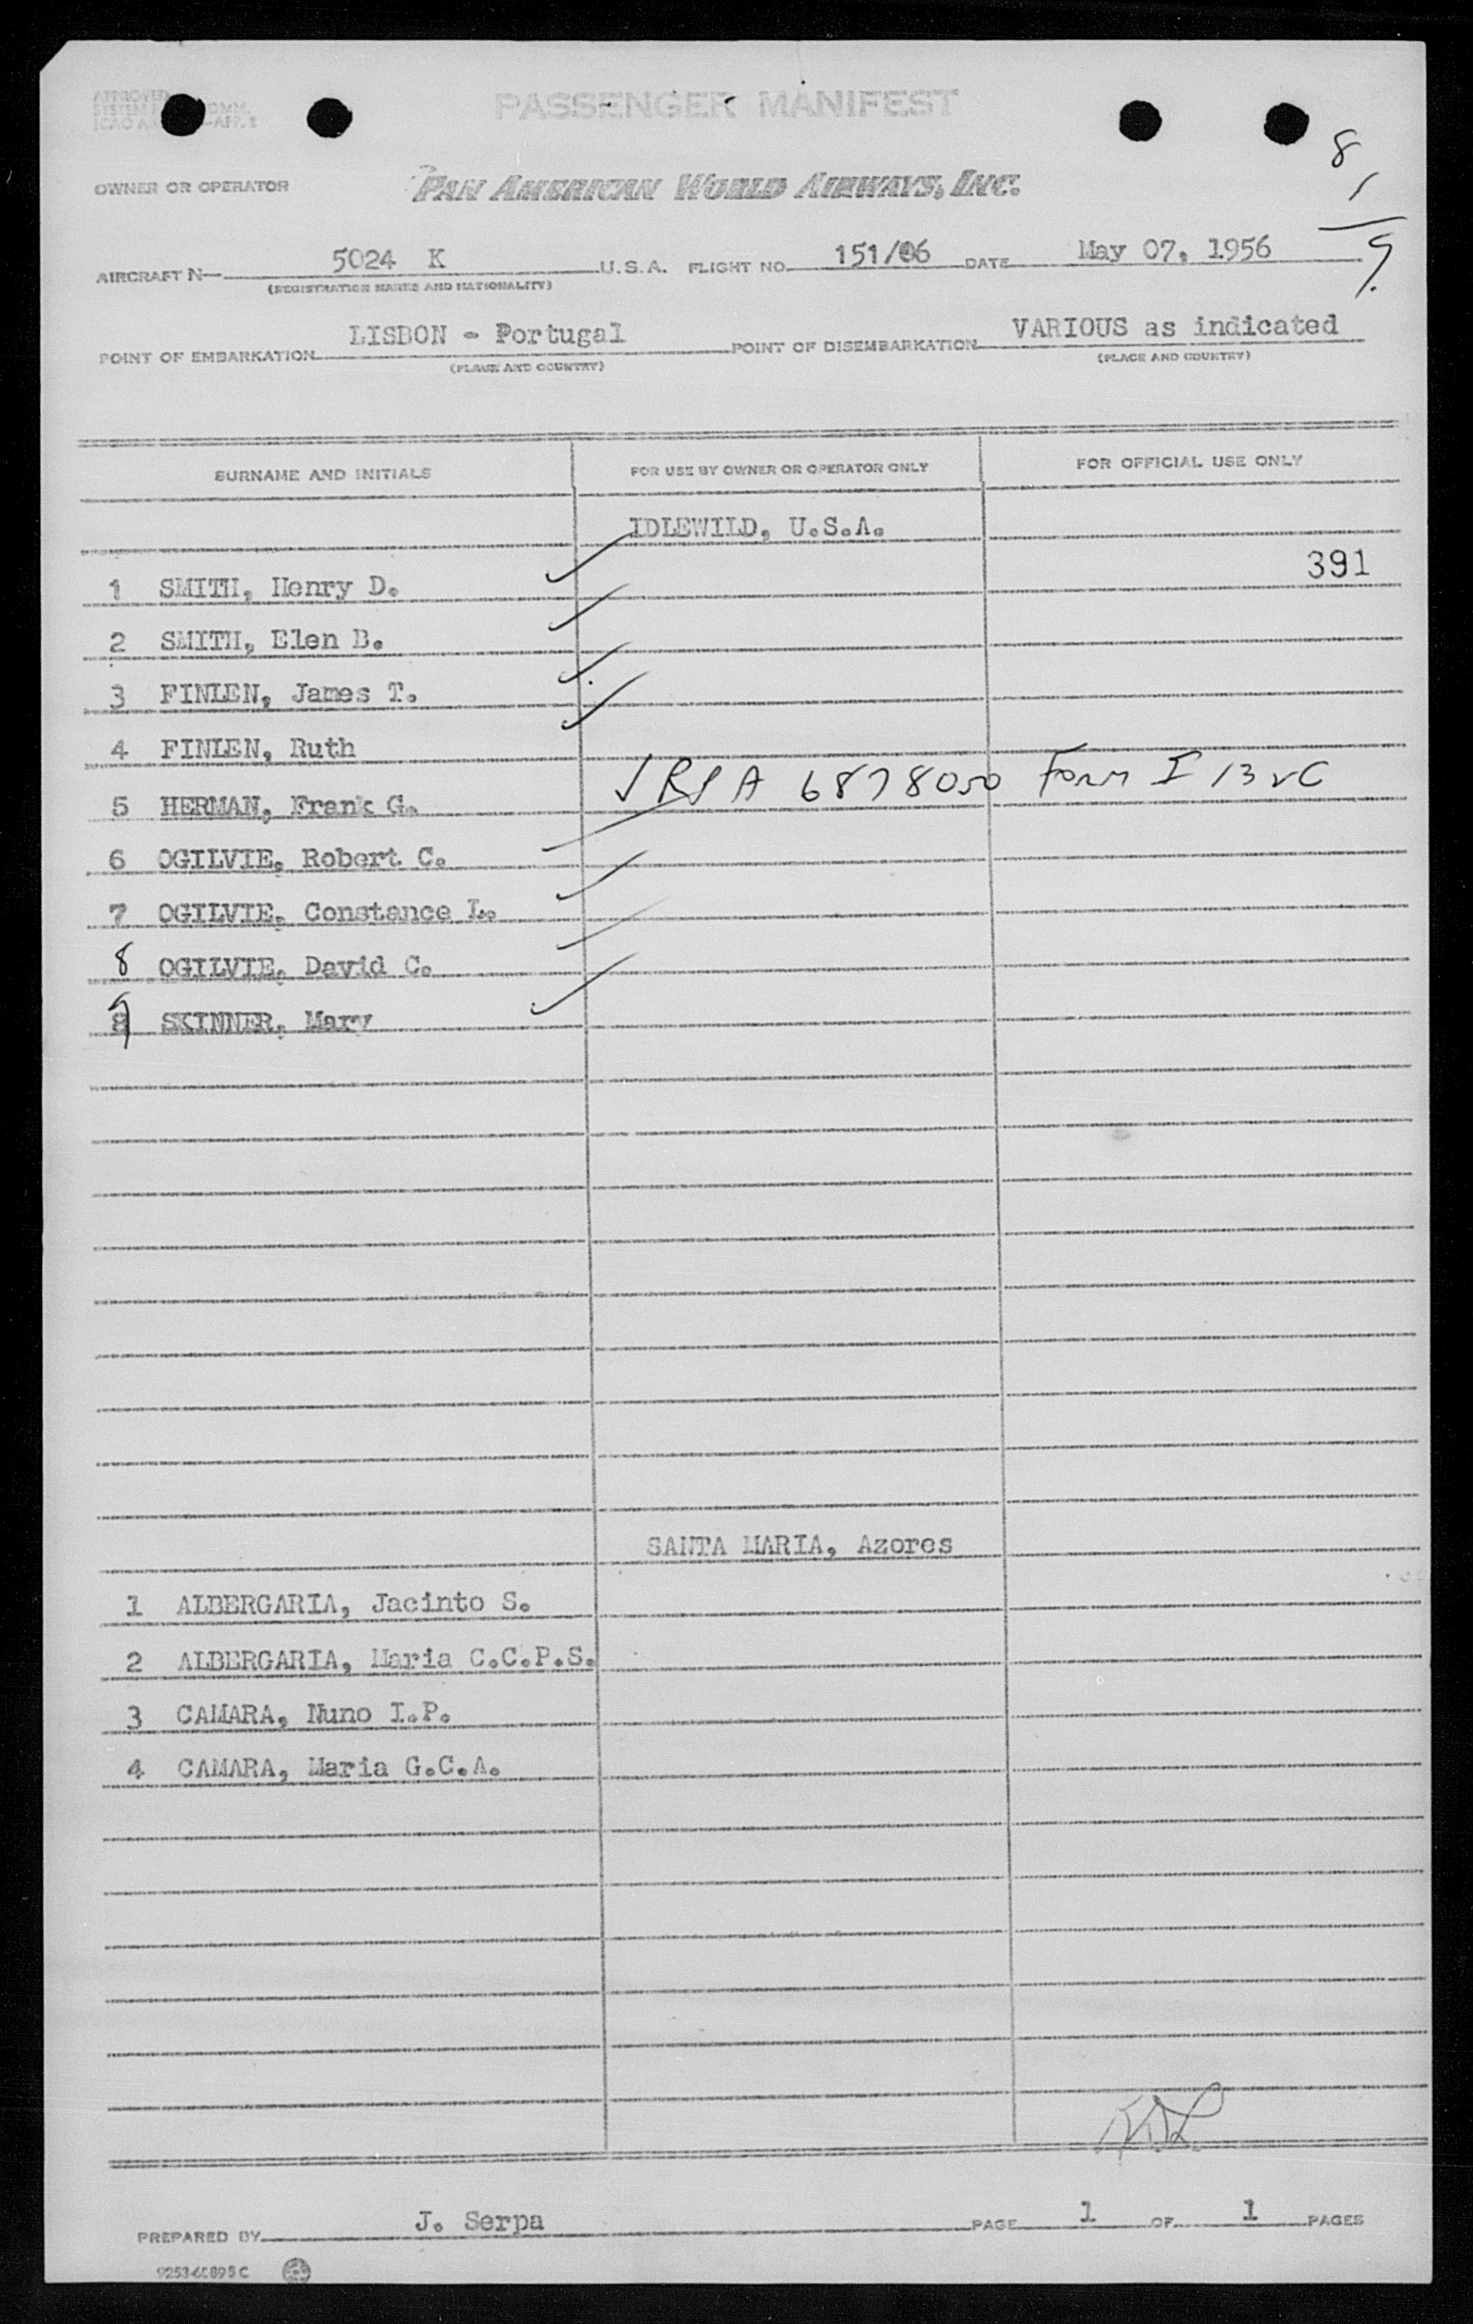 APPROVED
PASSENGER MANIFEST
8
1
9
OWNER OR OPERATOR PAN AMERICAN WORLD AIRWAYS, INC.
AIRCRAFT N- 5024 K U.S.A. FLIGHT NO. 151/06 DATE May 07, 1956
(REGISTRATION MARKS AND NATIONALITY)
POINT OF EMBARKATION LISBON - Portugal POINT OF DISEMBARKATION VARIOUS as indicated
(PLACE AND COUNTRY) (PLACE AND COUNTRY)
SURNAME AND INITIALS FOR USE BY OWNER OR OPERATOR ONLY FOR OFFICIAL USE ONLY
IDLEWILD, U.S.A.
391
1 SMITH, Henry D.
2 SMITH, Elen B.
3 FINLEN, James T.
4 FINLEN, Ruth
5 HERMAN, Frank G. A 6878050 Form I 13
6 OGILVIE, Robert C.
7 OGILVIE, Constance L.
8 OGILVIE, David C.
9 SKINNER, Mary
SANTA MARIA, Azores
1 ALBERGARIA, Jacinto S.
2 ALBERGARIA, Maria C.C.P.S.
3 CAMARA, Nuno I.P.
4 CAMARA, Maria G.C.A.
PREPARED BY J. Serpa PAGE 1 OF 1 PAGES